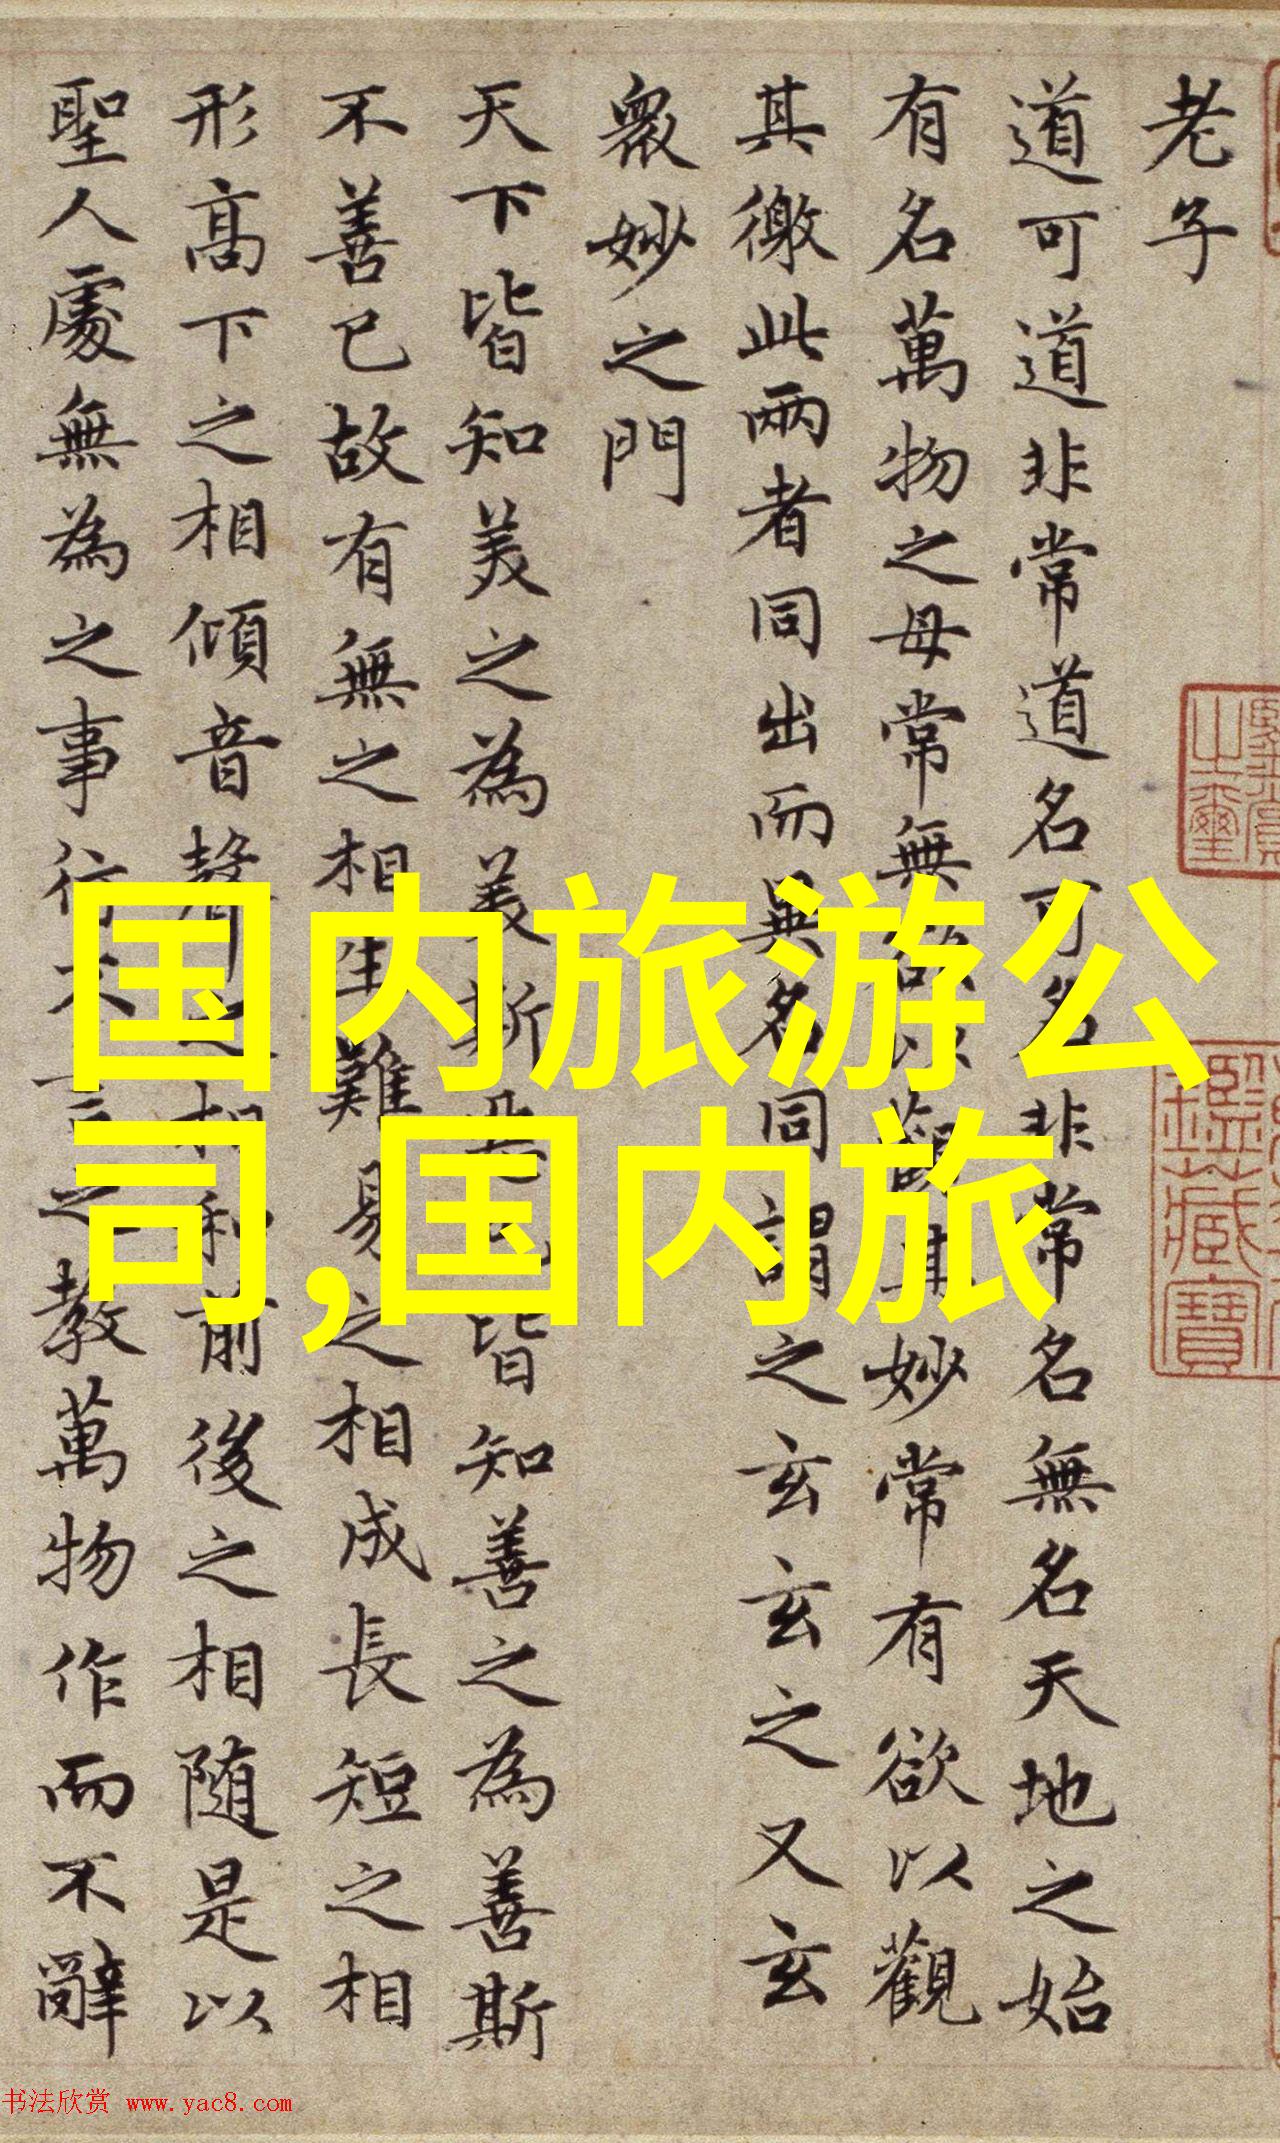 老子
道可道非常道名可名非常名無名天地之始
有名萬物之母常無欲以觀其妙常有欲以觀
其徼此兩者同出而異名同謂之玄玄之又玄
衆妙之門
天下皆知美之為美斯惡已皆知善之為善斯
不善已故有無之相生難易之相成長短之相
形高下之相傾音聲之相和前後之相随是以
聖人處無為之事行不言之教萬物作而不辭
国内旅游公
司,国内旅
鑑藏寶
书法欣赏 www.yac8.com